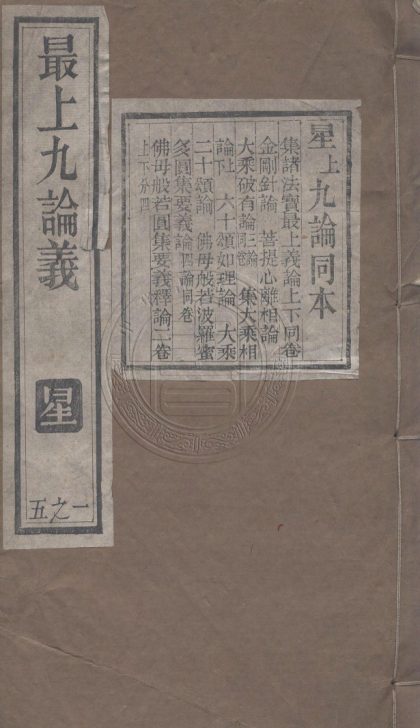 最上九論義
星
一之五
星上九論同本
集諸法寶最上義論上下同卷
金剛針論 菩提心離相論
大乘破有論 集大乘相
論上下 六十頌如理論 大乘
二十頌論 佛母般若波羅蜜
多圓集要義論四論同卷
佛母般若圓集要義釋論二卷
上下分四